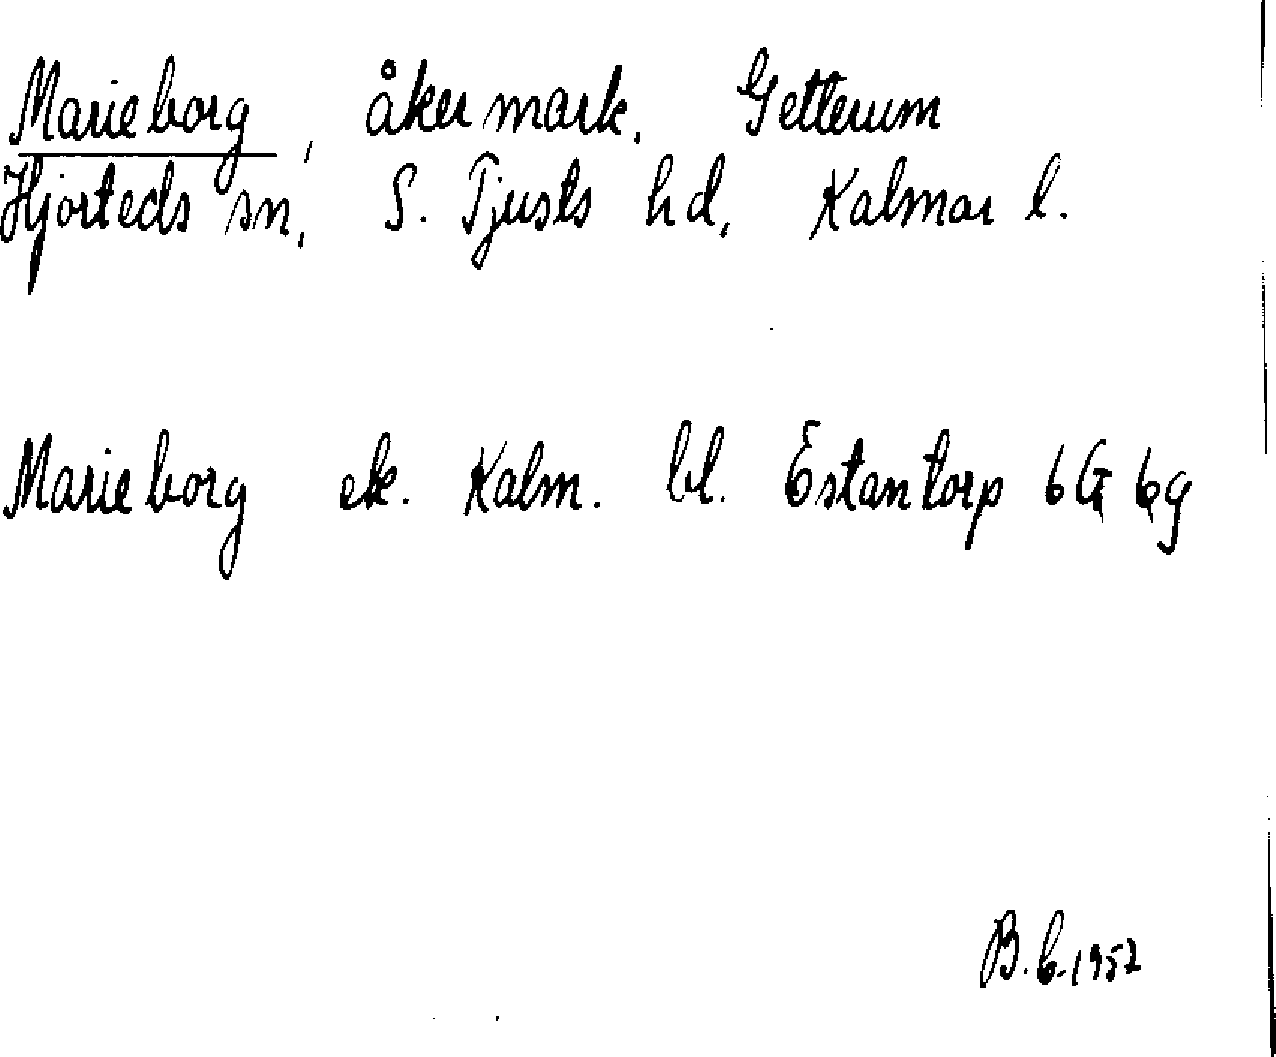 Marieborg, åkermark. Getterum
Hjorteds sn, S. Tjusts hd, Kalmar l.
Marieborg ek. Kalm. bl. Östantorp 6G 6g
B.b. 1952